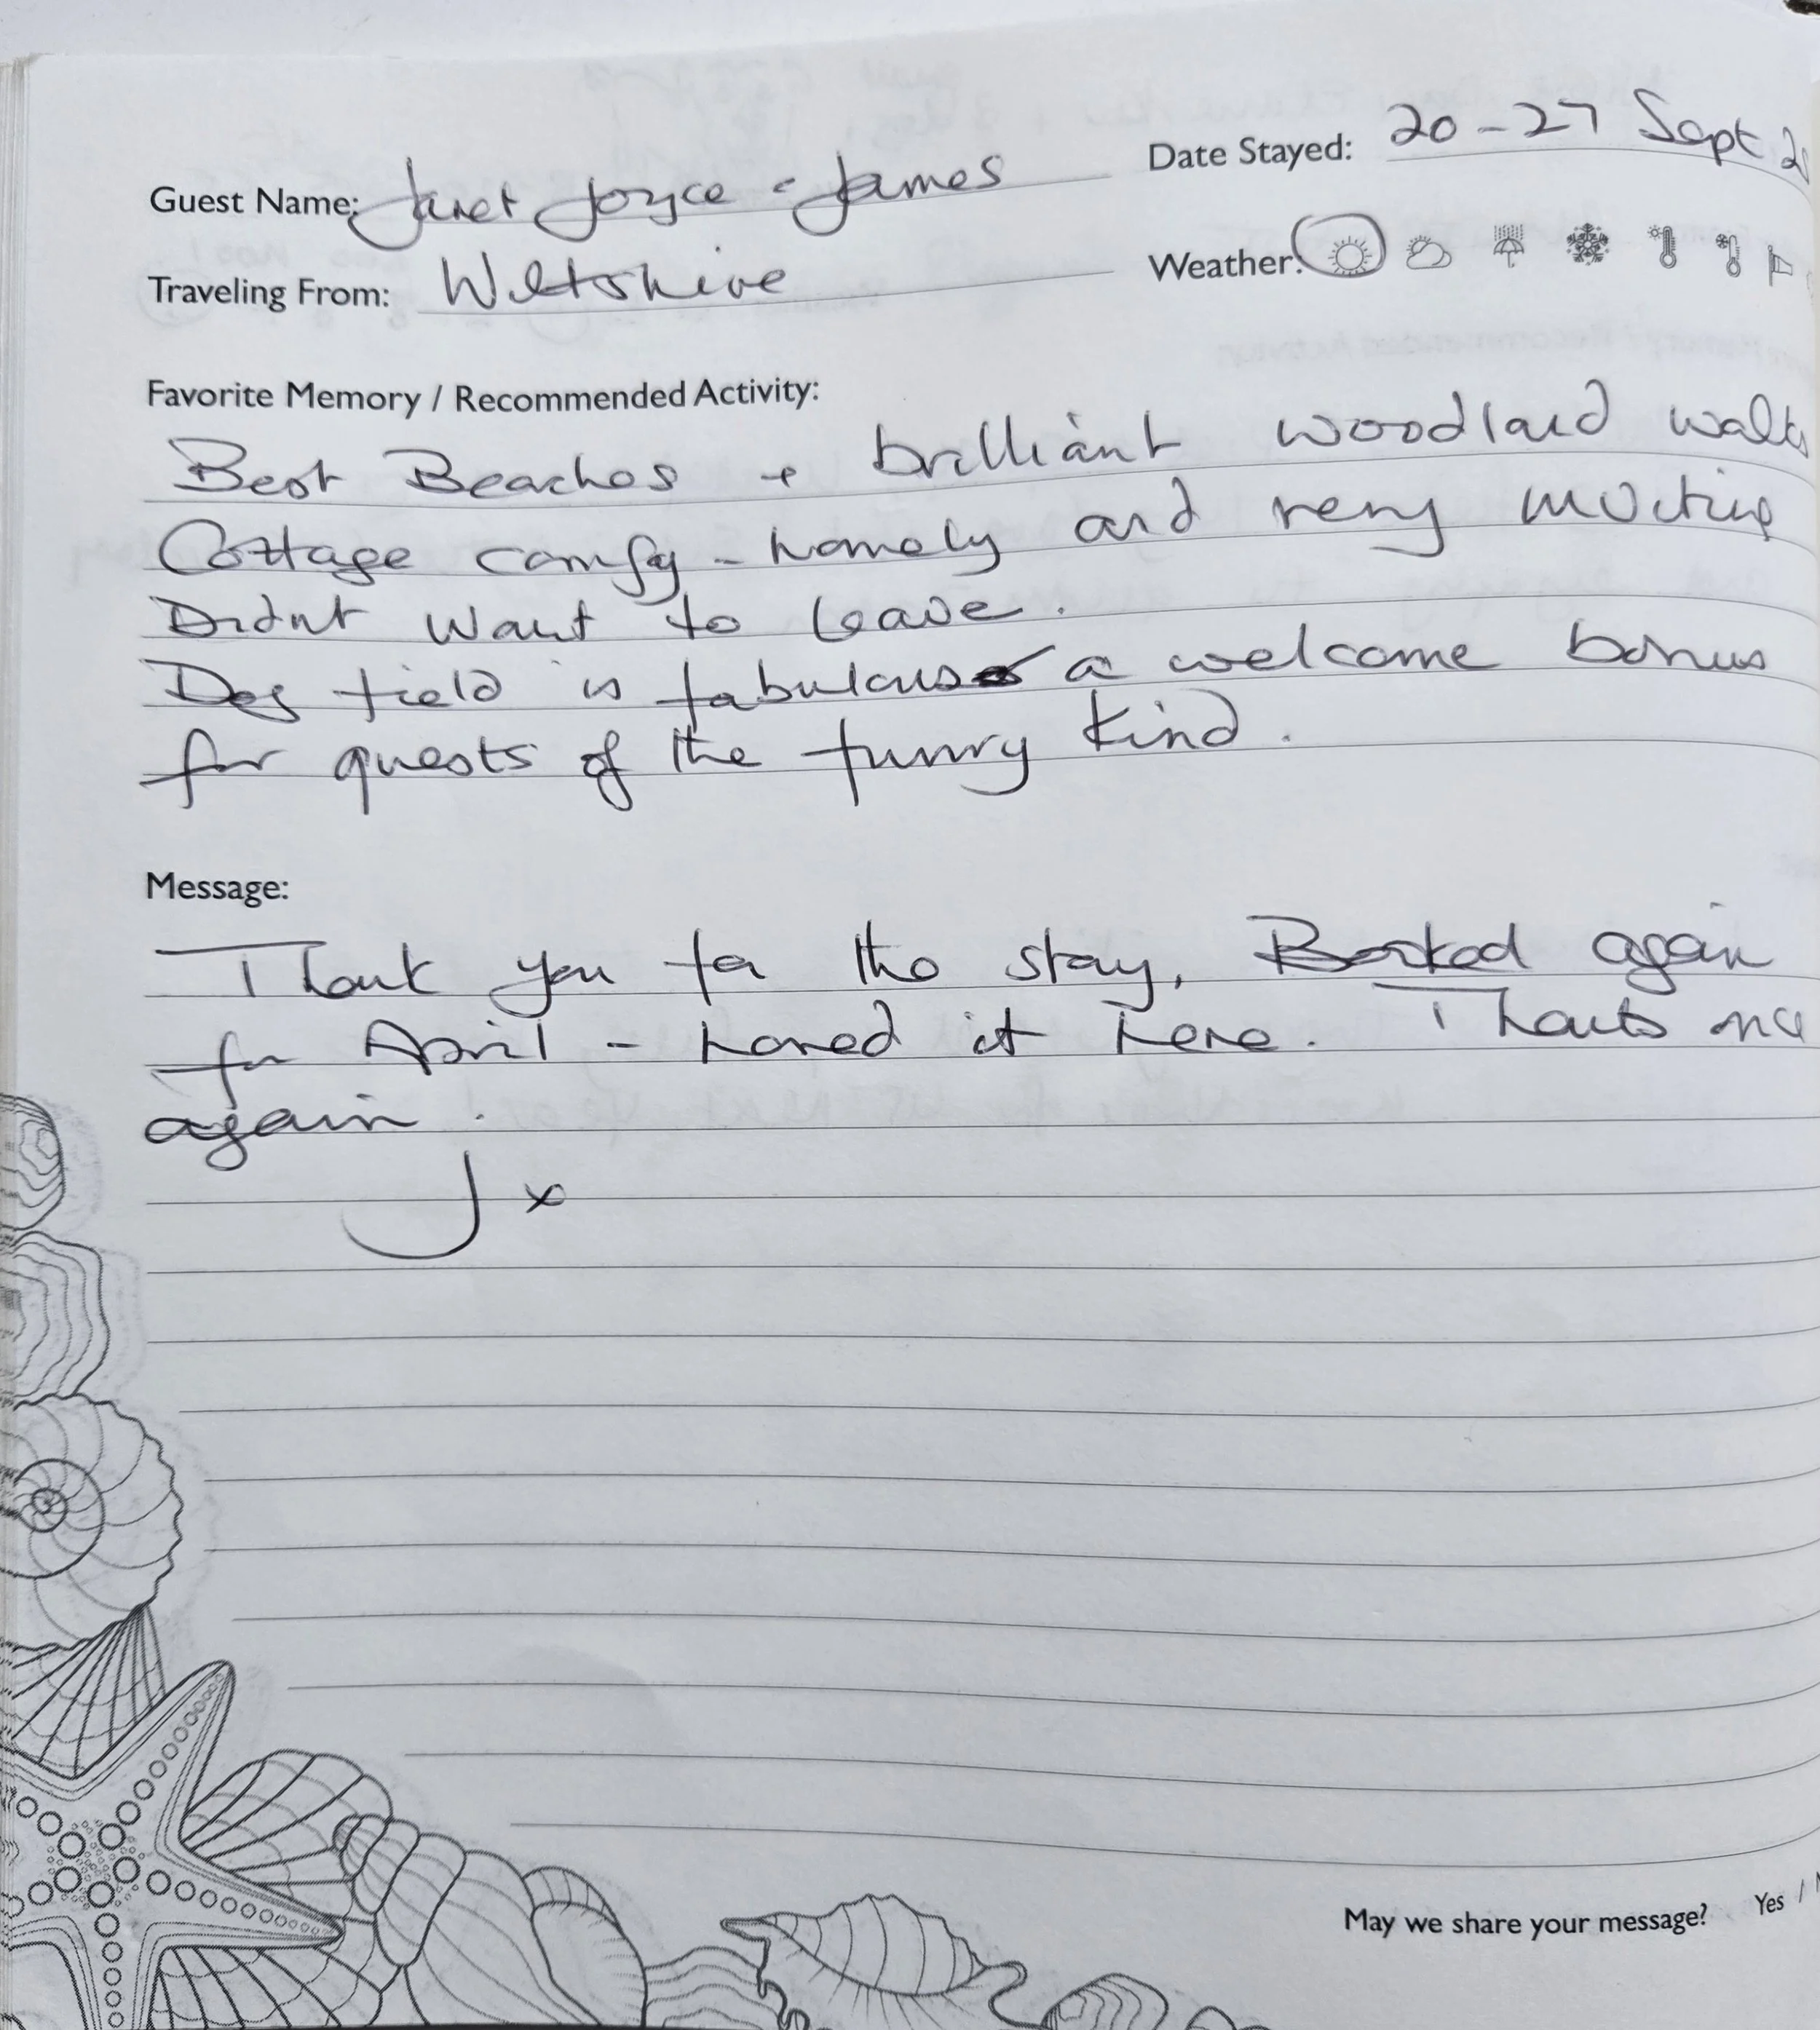 Date Stayed: 20 - 27 Sept
Guest Name: Janet Joyce - James
Weather:
Traveling From: Wiltshire
Favorite Memory / Recommended Activity:
Best Beaches + brilliant woodland walks
Cottage comfy - homely and very inviting
Didnt want to leave.
Dog field is fabulous a welcome bonus
for guests of the furry kind.
Message:
Thank you for the stay, Booked again
for April - Loved it here. Thanks
again.
J x
May we share your message? Yes /